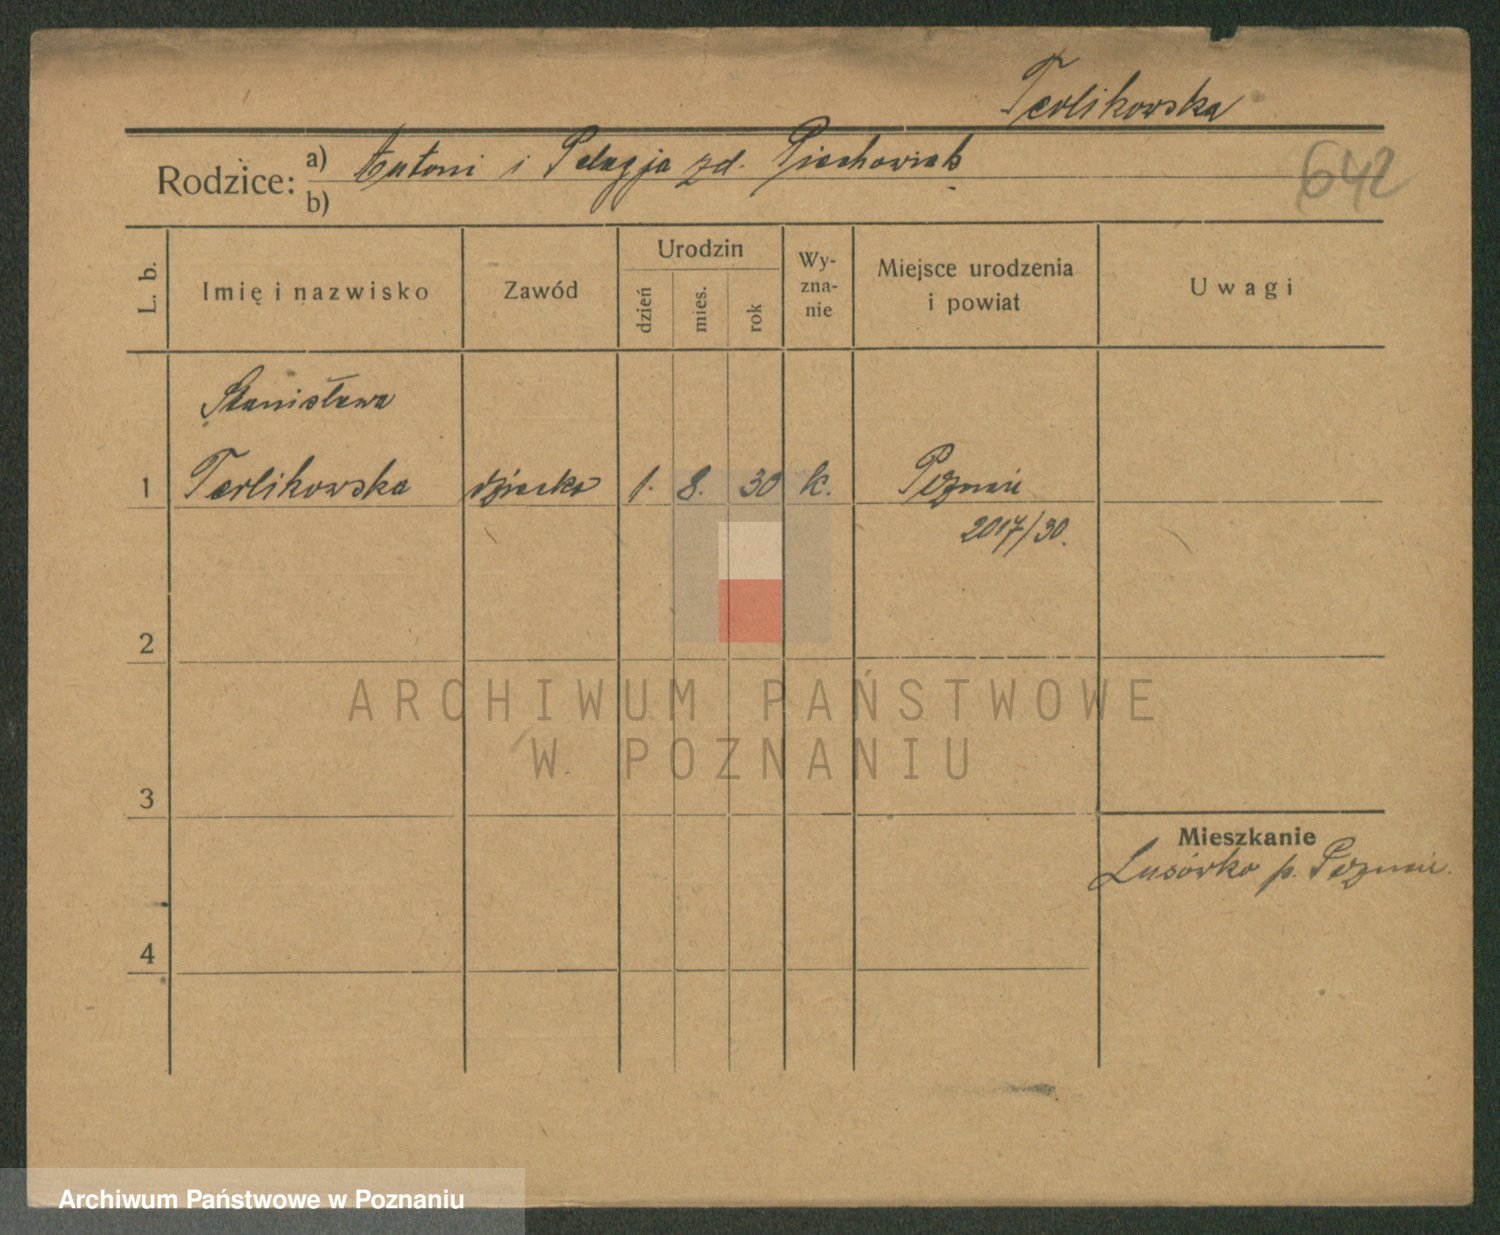 Terlikowska
642
Rodzice: a) Antoni i Pelagja zd. Piechowiak
b)
L. b. Imię i nazwisko Zawód Urodzin dzień mies. rok Wy-zna-nie Miejsce urodzenia i powiat Uwagi
Stanisława
1 Terlikowska dziecko 1. 8. 30 k. Poznań
2017/30.
2
ARCHIWUM PAŃSTWOWE
W POZNANIU
3
Mieszkanie
Lusówko p. Poznań.
4
Archiwum Państwowe w Poznaniu